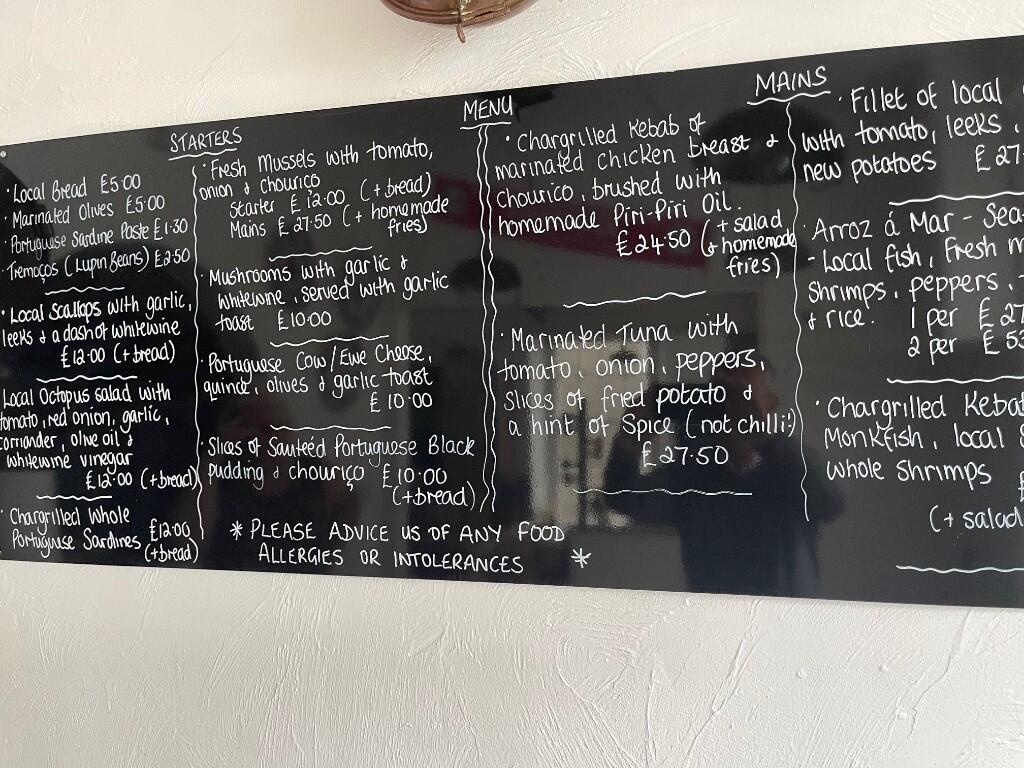 MENU
STARTERS
· Local Bread £5.00
· Marinated Olives £5.00
· Portuguese Sardine Paste £1.30
· Tremoços (Lupin Beans) £2.50
· Local Scallops with garlic,
leeks & a dash of whitewine
£12.00 (+bread)
Local Octopus salad with
tomato, red onion, garlic,
coriander, olive oil &
whitewine vinegar
£12.00 (+bread)
· Chargrilled Whole
Portuguese Sardines £12.00
(+bread)
· Fresh Mussels with tomato,
onion & chourico
Starter £12.00 (+bread)
Mains £27.50 (+ homemade
fries)
· Mushrooms with garlic &
whitewine, served with garlic
toast £10.00
· Portuguese Cow/Ewe Cheese,
quince, olives & garlic toast
£10.00
· Slices of Sauteéd Portuguese Black
pudding & chouriço £10.00
(+bread)
* PLEASE ADVICE US OF ANY FOOD
ALLERGIES OR INTOLERANCES *
MAINS
· Chargrilled Kebab of
marinated chicken breast &
chourico, brushed with
homemade Piri-Piri Oil.
£24.50 (+ salad
& homemade
fries)
· Marinated Tuna with
tomato, onion, peppers,
slices of fried potato &
a hint of Spice (not chilli!)
£27.50
· Fillet of local
with tomato, leeks,
new potatoes £27.
· Arroz á Mar -
- Local fish, Fresh
Shrimps, peppers,
& rice. 1 per £27
2 per £
· Chargrilled Kebab
Monkfish, local
whole shrimps £
(+ salad